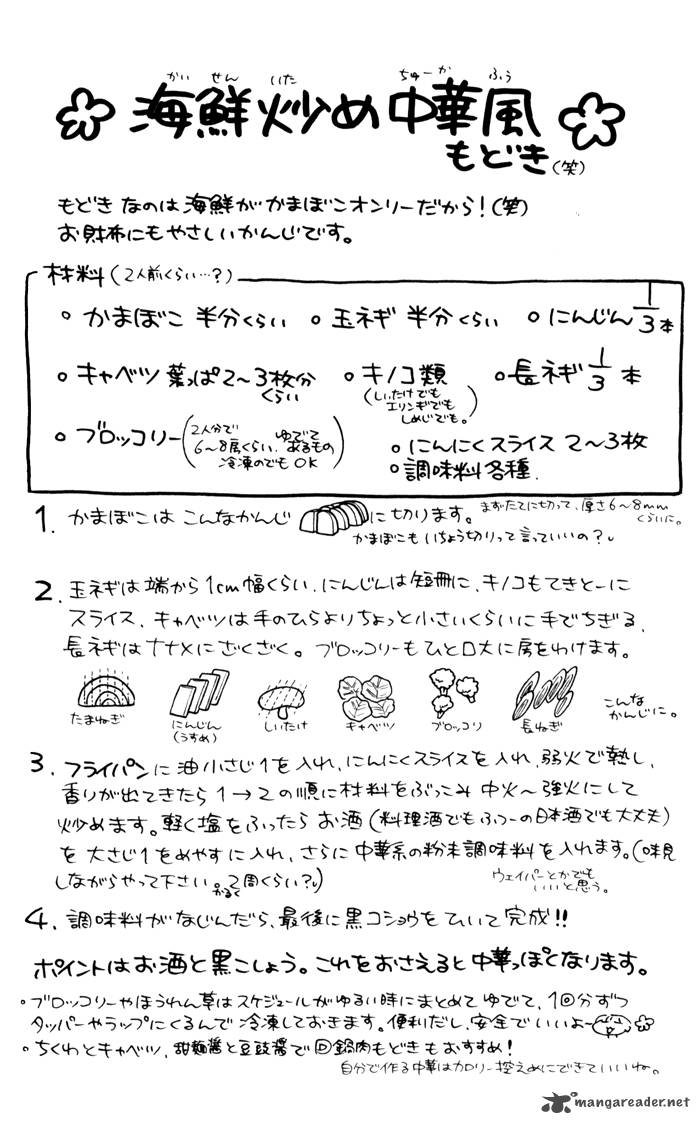 かい せん いた ちゅーか ふう
海鮮炒め中華風
もどき(笑)
もどきなのは海鮮がかまぼこオンリーだから!(笑)
お財布にもやさしいかんじです。
材料(2人前くらい…?)
。かまぼこ 半分くらい 。玉ネギ 半分くらい 。にんじん 1/3本
。キャベツ 葉っぱ2〜3枚分 。キノコ類 。長ネギ 1/3本
くらい (しいたけでも
エリンギでも
しめじでも。)
。ブロッコリー(2人分で
6〜8房くらい. ゆでてあるもの
冷凍のでもOK)
。にんにくスライス 2〜3枚
。調味料各種.
1. かまぼこは こんなかんじ に切ります。 まずたてに切って、厚さ6〜8mm
くらいに。
かまぼこもいちょう切りって言っていいの?
2. 玉ネギは端から1cm幅くらい、にんじんは短冊に、キノコもてきとーに
スライス、キャベツは手のひらよりちょっと小さいくらいに手でちぎる、
長ネギはナナメにざくざく。ブロッコリーもひと口大に房をわけます。
たまねぎ にんじん しいたけ キャベツ ブロッコリ 長ねぎ こんな
(うすめ) かんじに。
3. フライパンに油小さじ1を入れ、にんにくスライスを入れ、弱火で熱し、
香りが出てきたら1→2の順に材料をぶっこみ 中火〜強火にして
炒めます。軽く塩をふったら お酒(料理酒でもふつーの日本酒でも大丈夫)
を 大さじ1をめやすに入れ、さらに 中華系の粉末調味料を入れます。(味見
しながらやって下さい。かるく2周くらい?) ウェイパーとかでも
いいと思う。
4. 調味料がなじんだら、最後に黒コショウをひいて完成!!
ポイントはお酒と黒こしょう。これをおさえると中華っぽくなります。
。ブロッコリーやほうれん草はスケジュールがゆるい時にまとめてゆでて、1回分ずつ
タッパーやラップにくるんで冷凍しておきます。便利だし、安全でいいよー
。ちくわとキャベツ、甜麺醤と豆豉醤で回鍋肉もどきもおすすめ!
自分で作る中華はカロリー控えめにできていいね。
mangareader.net